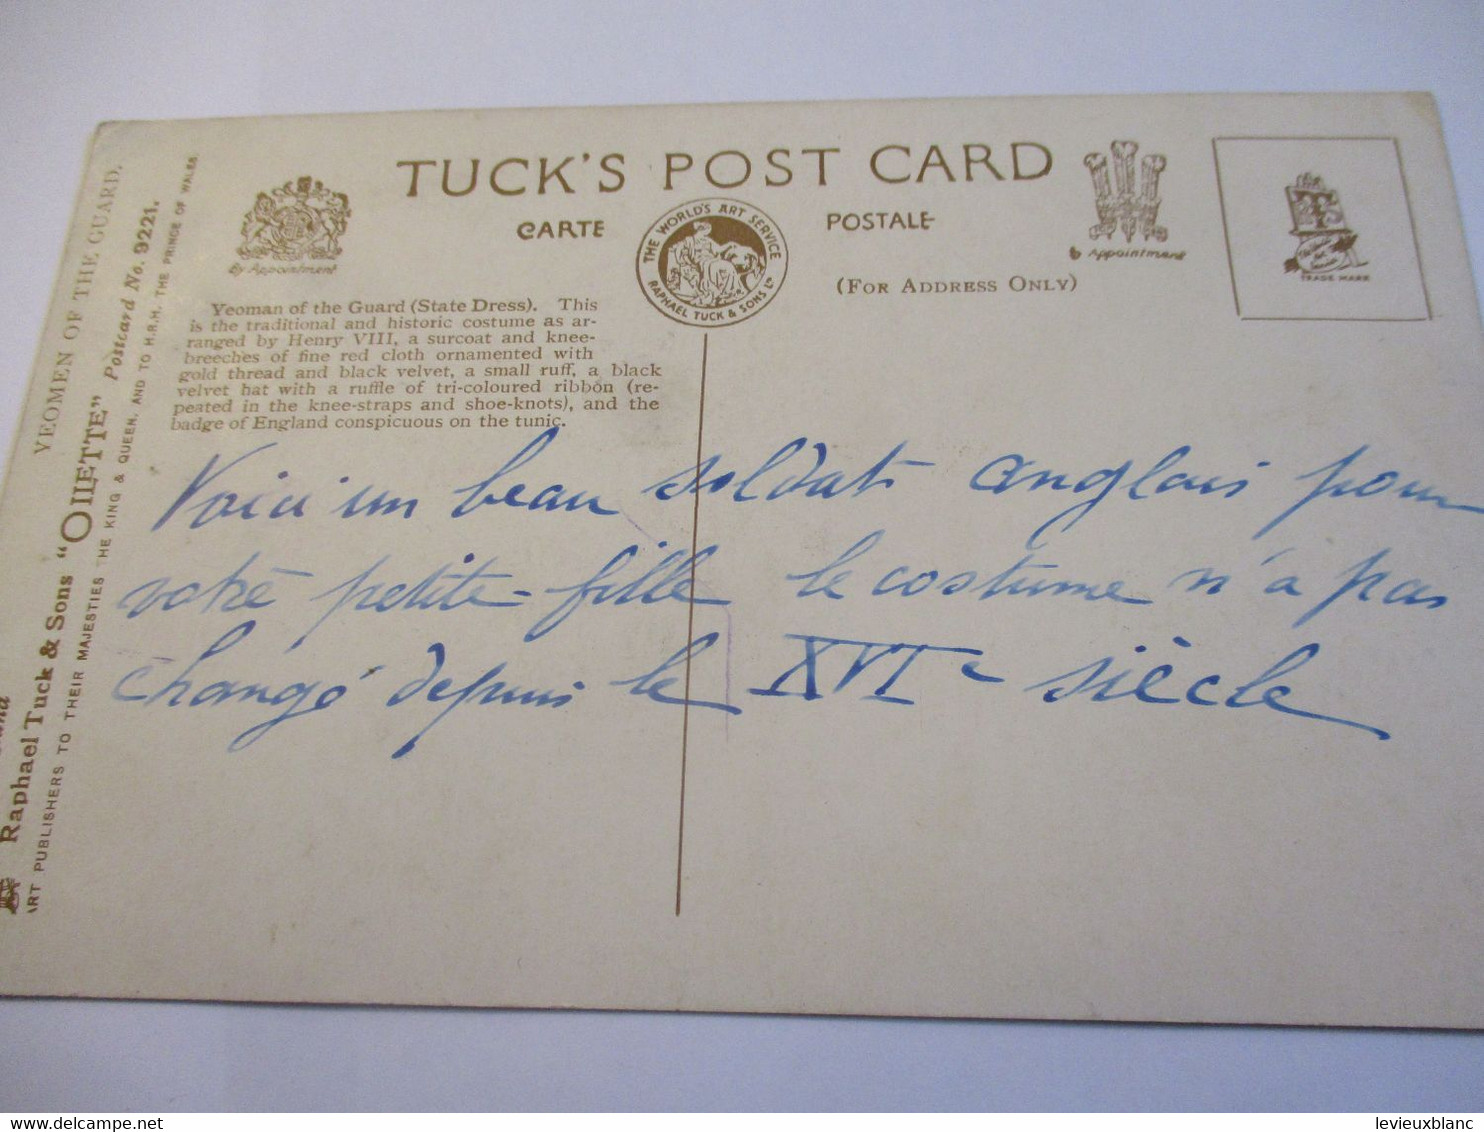 TUCK'S POST CARD
CARTE POSTALE
(FOR ADDRESS ONLY)
By Appointment
THE WORLD'S ART SERVICE
RAPHAEL TUCK & SONS Ld
By Appointment
TRADE MARK
Yeoman of the Guard (State Dress). This
is the traditional and historic costume as ar-
ranged by Henry VIII, a surcoat and knee-
breeches of fine red cloth ornamented with
gold thread and black velvet, a small ruff, a black
velvet hat with a ruffle of tri-coloured ribbon (re-
peated in the knee-straps and shoe-knots), and the
badge of England conspicuous on the tunic.
Voici un beau soldat anglais pour
votre petite-fille le costume n'a pas
changé depuis le XVIe siècle
YEOMEN OF THE GUARD.
Raphael Tuck & Sons "OILETTE" Postcard No. 9221.
ART PUBLISHERS TO THEIR MAJESTIES THE KING & QUEEN, AND TO H.R.H. THE PRINCE OF WALES.
delcampe.net
levieuxblanc